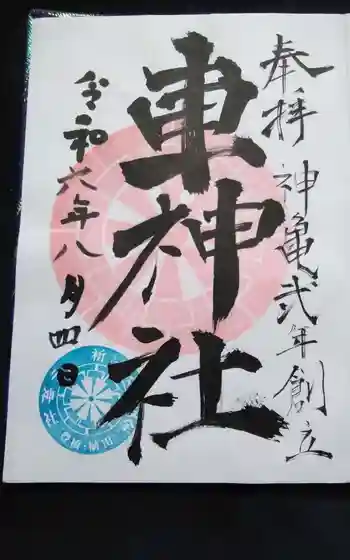 奉拝 神亀弐年創立
車神社
令和六年八月四日
祈